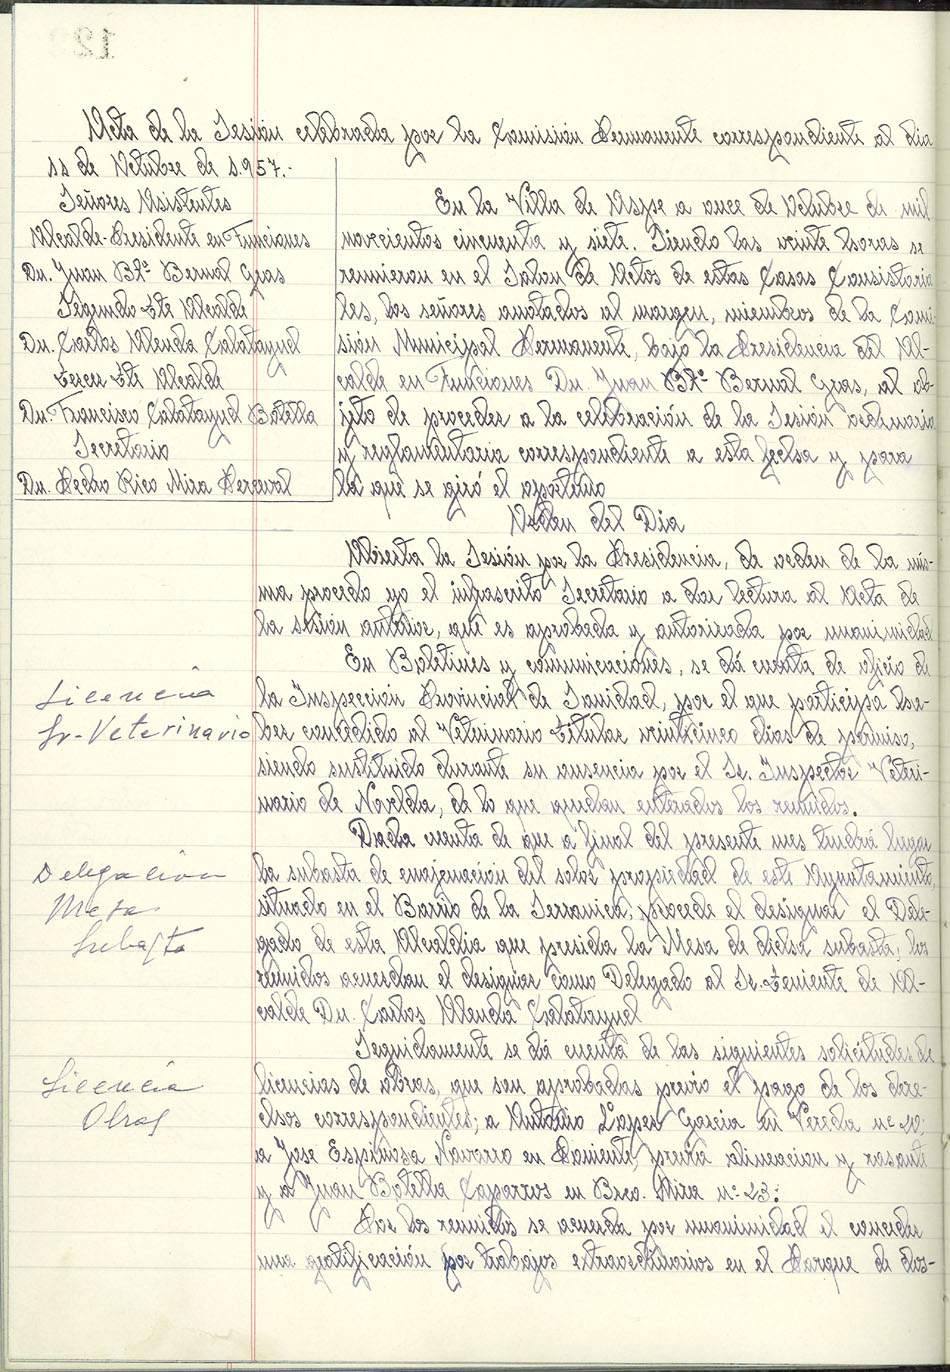 Acta de la Sesión celebrada por la Comision Permanente correspondiente al dia
11 de Octubre de 1.957.-
Señores Asistentes
Alcalde-Presidente en Funciones
Dn. Juan Btª Bernal Gras
Segundo Tte Alcalde
Dn. Carlos Allenda Calatayud
Tercer Tte Alcalde
Dn. Francisco Calatayud Botella
Secretario
Dn. Pedro Rico Mira Perceval
En la Villa de Aspe a once de Octubre de mil
novecientos cincuenta y siete. Siendo las veinte horas se
reunieron en el Salon de Actos de estas Casas Consistoria
les, los señores anotados al margen, miembros de la Comi-
sión Municipal Permanente, bajo la Presidencia del Al-
calde en Funciones Dn. Juan Btª Bernal Gras, al ob-
jeto de proceder a la celebración de la Sesión ordinaria
y reglamentaria correspondiente a esta fecha y para
la que se giró el oportuno
Orden del Dia
Abierta la Sesión por la Presidencia, de orden de la mis-
ma procedo yo el infrascrito Secretario a dar lectura al Acta de
la sesión anterior, que es aprobada y autorizada por unanimidad
En Boletines y comunicaciones, se dá cuenta de oficio de
la Inspección Provincial de Sanidad, por el que participa ha-
ber concedido al Veterinario Titular veinticinco dias de permiso,
siendo sustituido durante su ausencia por el Sr. Inspector Veteri-
nario de Novelda, de lo que quedan enterados los reunidos.
Licencia
Sr-Veterinario
Dada cuenta de que a final del presente mes tendrá lugar
la subasta de enajenación del solar propiedad de este Ayuntamiento,
situado en el Barrio de la Serranica, procede el designar el Dele-
gado de esta Alcaldia que presida la Mesa de dicha subasta; los
reunidos acuerdan el designar como Delegado al Sr. Teniente de Al-
calde Dn. Carlos Allenda Calatayud
Delegación
Mesa
Subasta
Seguidamente se dá cuenta de las siguientes solicitudes de
licencias de obras, que son aprobadas previo el pago de los dere-
chos correspondientes; a Antonio Lopez Garcia en Vereda nº 10;
a Jose Espinosa Navarro en Poniente, previa alineacion y rasante
y a Juan Botella Caparros en Bco. Mira nº 23;
Licencia
Obras
Por los reunidos se acuerda por unanimidad el conceder
una gratificación por trabajos extraordinarios en el Parque de dos-